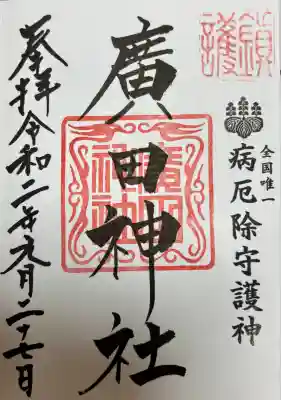 鎮護
全国唯一
病厄除守護神
廣田神社
奉拝令和二年九月二十七日
廣田神社